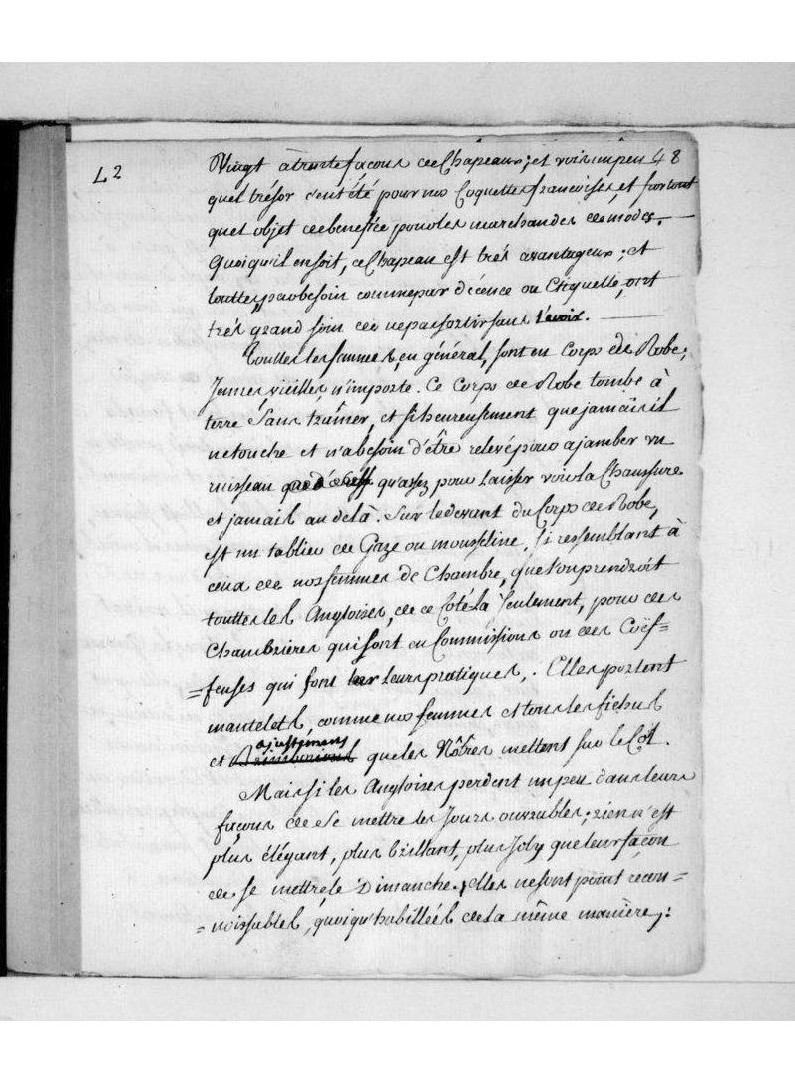 L2
48
Vingt à trente façons de Chapeaux; et voir un peu
quel trésor c'eut été pour nos Coquettes françoises, et surtout
quel objet de benefice pour les marchandes des modes.
Quoiqu'il en soit, ce Chapeau est trés avantageux; et
touttes, par besoin comme par décence ou Etiquette, ont
trés grand soin de ne pas sortir sans l'avoir.
Touttes les femmes, en général, sont en Corps de Robe;
Jeunes, vieilles, n'importe. Ce Corps de Robe tombe à
terre sans traîner, et si heureusement que jamais il
ne touche et n'a besoin d'être relevé pour ajamber un
ruisseau qu'assez pour laisser voir la Chaussure
et jamais au delà. Sur le devant du Corps de Robe,
est un tablier de Gaze ou mousseline, si ressemblant à
ceux de nos femmes de Chambre, que l'on prendroit
touttes les Angloises, de ce Coté là seulement, pour des
Chambrières qui sont en Commissions ou des Coëf=
=feuses qui font leurs pratiques. Elles portent
mantelets, comme nos femmes et tous les fichus
et ajustemens que les Nôtres mettent sur le Cöl.
Mais si les Angloises perdent un peu dans leurs
façons de se mettre les Jours ouvrables; rien n'est
plus élégant, plus brillant, plus Joly que leur façon
de se mettre, le Dimanche. elles ne sont point recon=
=noissables, quoiqu'habillées de la même manière;: